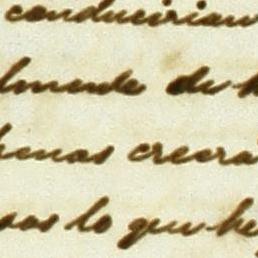 conducirian
lmente de
henas creera
sas lo que he